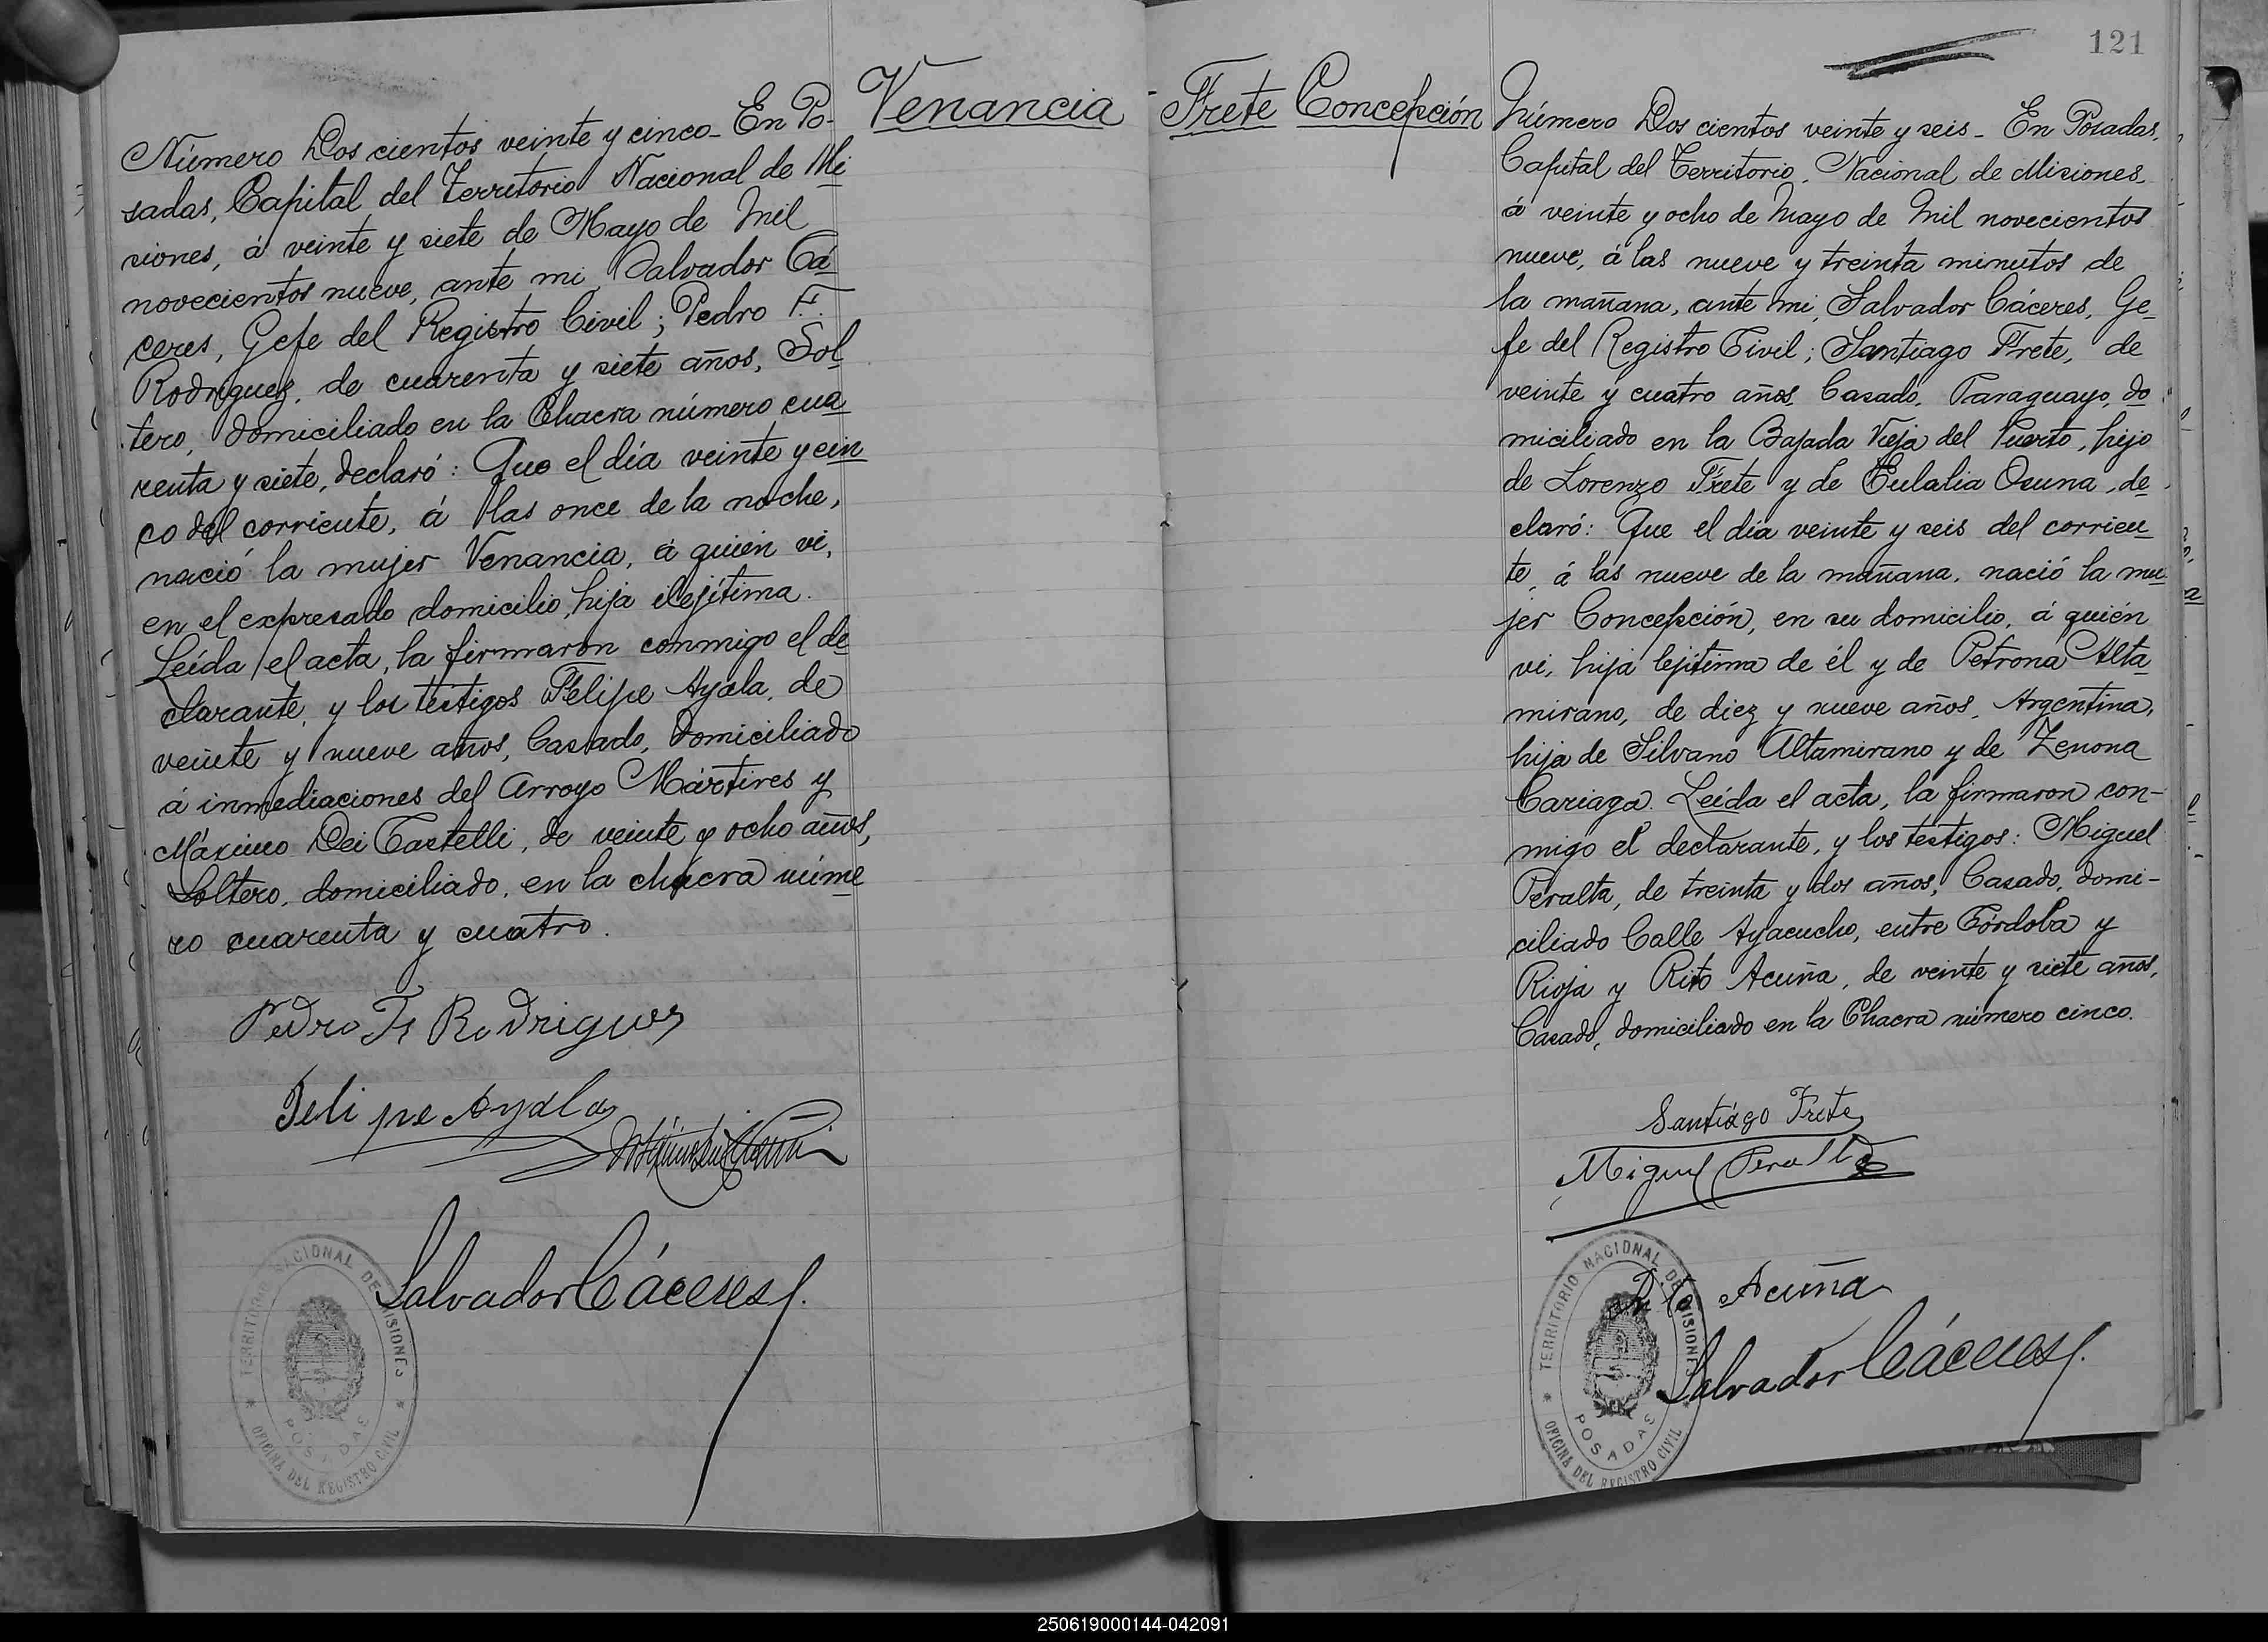 Venancia
Número Dos cientos veinte y cinco - En Po-
sadas, Capital del Territorio Nacional de Mi
siones, á veinte y siete de Mayo de Mil
novecientos nueve, ante mi, Salvador Cá
ceres, Gefe del Registro Civil; Pedro F.
Rodriguez, de cuarenta y siete años, Sol
tero, domiciliado en la Chacra número cua
renta y siete, declaró: Que el día veinte y cin
co del corriente, á las once de la noche,
nació la mujer Venancia, á quien vi,
en el expresado domicilio, hija ilejítima.
Leída el acta, la firmaron conmigo el de
clarante, y los testigos Felipe Ayala, de
veinte y nueve años, Casado, domiciliado
á inmediaciones del Arroyo Mártires y
Máximo Dei Castelli, de veinte y ocho años,
Soltero, domiciliado, en la chacra núme
ro cuarenta y cuatro.
Pedro F. Rodriguez
Felipe Ayala
Salvador Cáceres
TERRITORIO NACIONAL DE MISIONES
POSADAS
OFICINA DEL REGISTRO CIVIL
121
Frete Concepción
Número Dos cientos veinte y seis - En Posadas,
Capital del Territorio Nacional de Misiones,
á veinte y ocho de Mayo de Mil novecientos
nueve, á las nueve y treinta minutos de
la mañana, ante mi, Salvador Cáceres, Ge-
fe del Registro Civil; Santiago Frete, de
veinte y cuatro años, Casado, Paraguayo, do
miciliado en la Bajada Vieja del Puerto, hijo
de Lorenzo Frete y de Eulalia Osuna, de
claró: Que el día veinte y seis del corrien
te, á las nueve de la mañana, nació la mu
jer Concepción, en su domicilio, á quién
vi, hija lejítima de él y de Petrona Alta
mirano, de diez y nueve años, Argentina,
hija de Silvano Altamirano y de Zenona
Cariaga. Leída el acta, la firmaron con-
migo el declarante, y los testigos: Miguel
Peralta, de treinta y dos años, Casado, domi-
ciliado Calle Ayacucho, entre Córdoba y
Rioja y Rito Acuña, de veinte y siete años,
Casado, domiciliado en la Chacra número cinco.
Santiago Frete
Miguel Peralta
Rito Acuña
Salvador Cáceres
TERRITORIO NACIONAL DE MISIONES
POSADAS
OFICINA DEL REGISTRO CIVIL
250619000144-042091